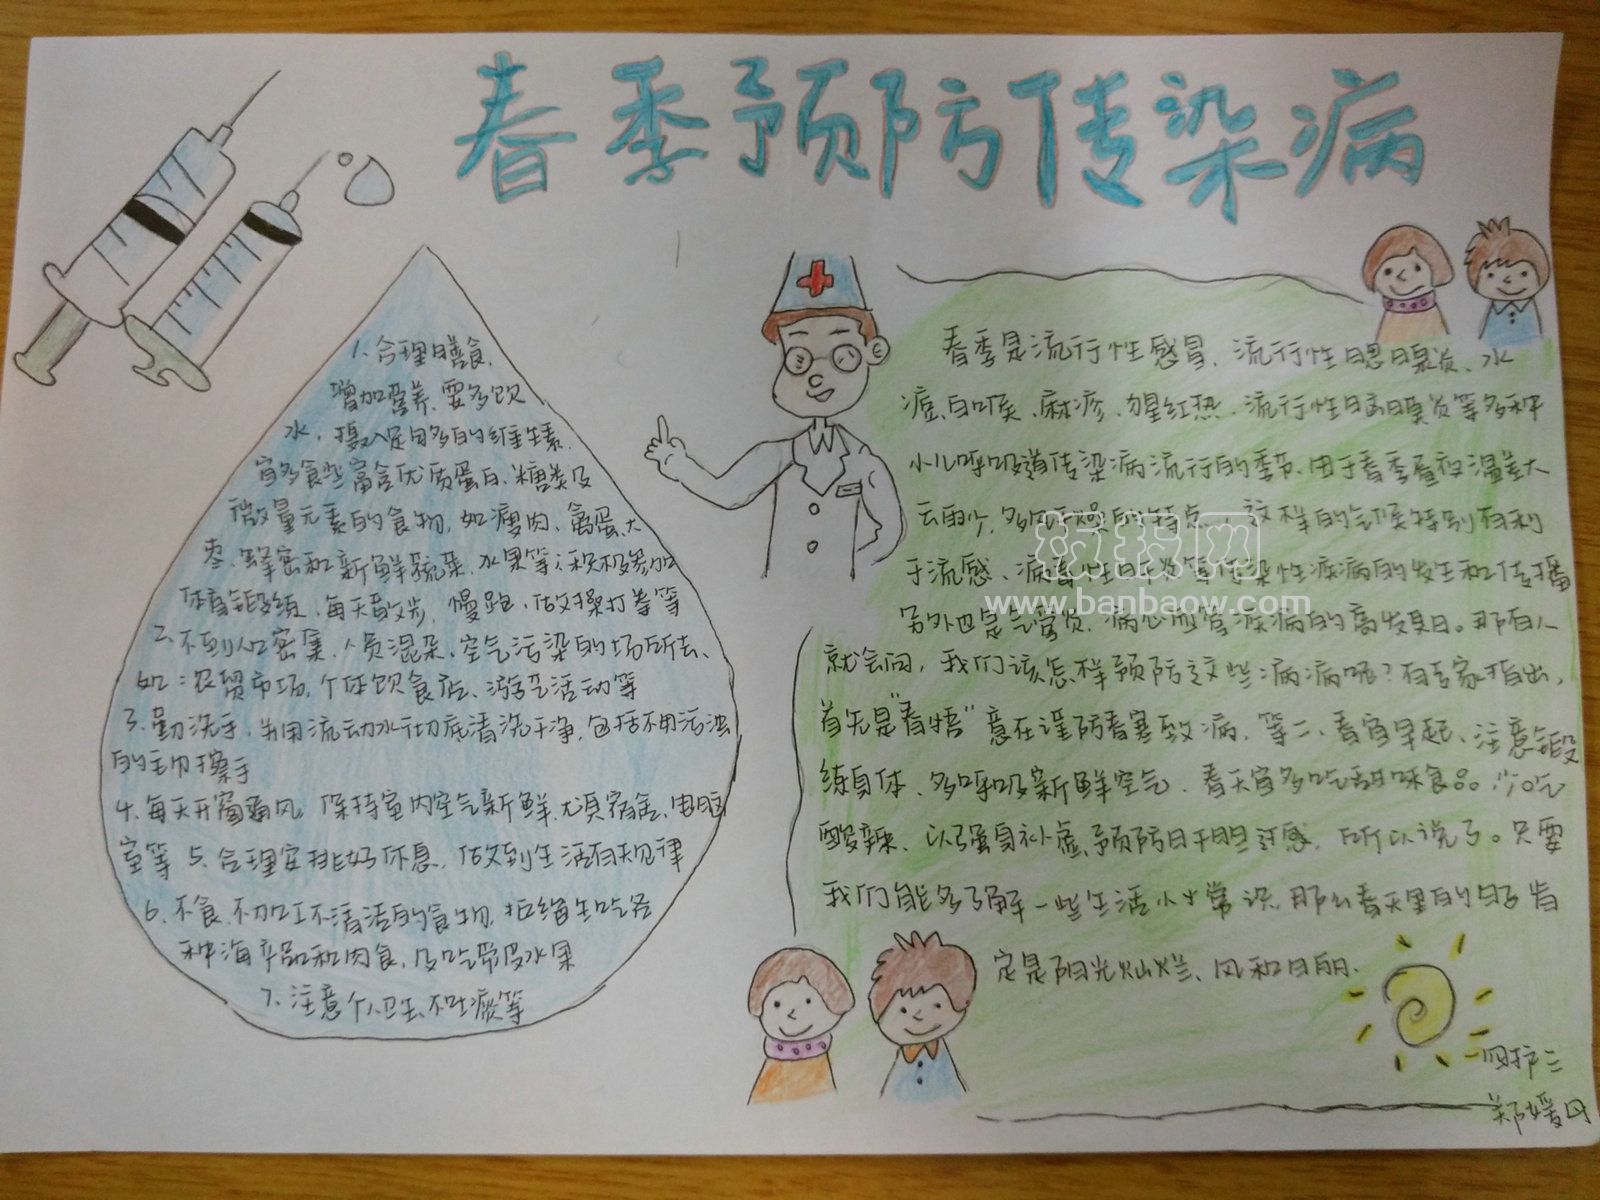 春季预防传染病
1、合理膳食,
增加营养,要多饮
水,摄入足够多的维生素,
宜多食些富含优质蛋白、糖类及
微量元素的食物,如瘦肉、禽蛋、大
枣、蜂密和新鲜蔬菜、水果等;积极参加
体育锻练,每天散步、慢跑、做操打拳等
2、不到人口密集、人员混杂、空气污染的场所去、
如:农贸市场、个体饮食店、游艺活动等
3、勤洗手,并用流动水彻底清洗干净,包括不用污浊
的毛巾擦手
4、每天开窗通风,保持室内空气新鲜,尤其宿舍、电脑
室等 5、合理安排好休息,做到生活有规律
6、不食、不加工不清洁的食物,拒绝生吃各
种海产品和肉食,及吃带皮水果
7、注意个人卫生、不吐痰等
春季是流行性感冒、流行性腮腺炎、水
痘、白喉、麻疹、猩红热、流行性脑膜炎等多种
小儿呼吸道传染病流行的季节、由于春季昼夜温差大
云雨少,多风干燥的特点、这样的气候特别有利
于流感、病毒性肝炎等传染性疾病的发生和传播
另外也是气管炎、病心血管疾病的高发期日。那有人
就会问,我们该怎样预防这些病病呢?有专家指出,
首先是“春捂”意在谨防春寒致病,等二、春宜早起、注意锻段
练身体、多呼吸新鲜空气、春天宜多吃甜味食品,少吃
酸辣、以强身补虚,预防肝胆,所以说了。只要
我们能多了解一些生活小常识,那么春天里的日子肯
定是阳光灿烂、风和日丽.
四护三
郑媛丹
材报网
www.banbaow.com